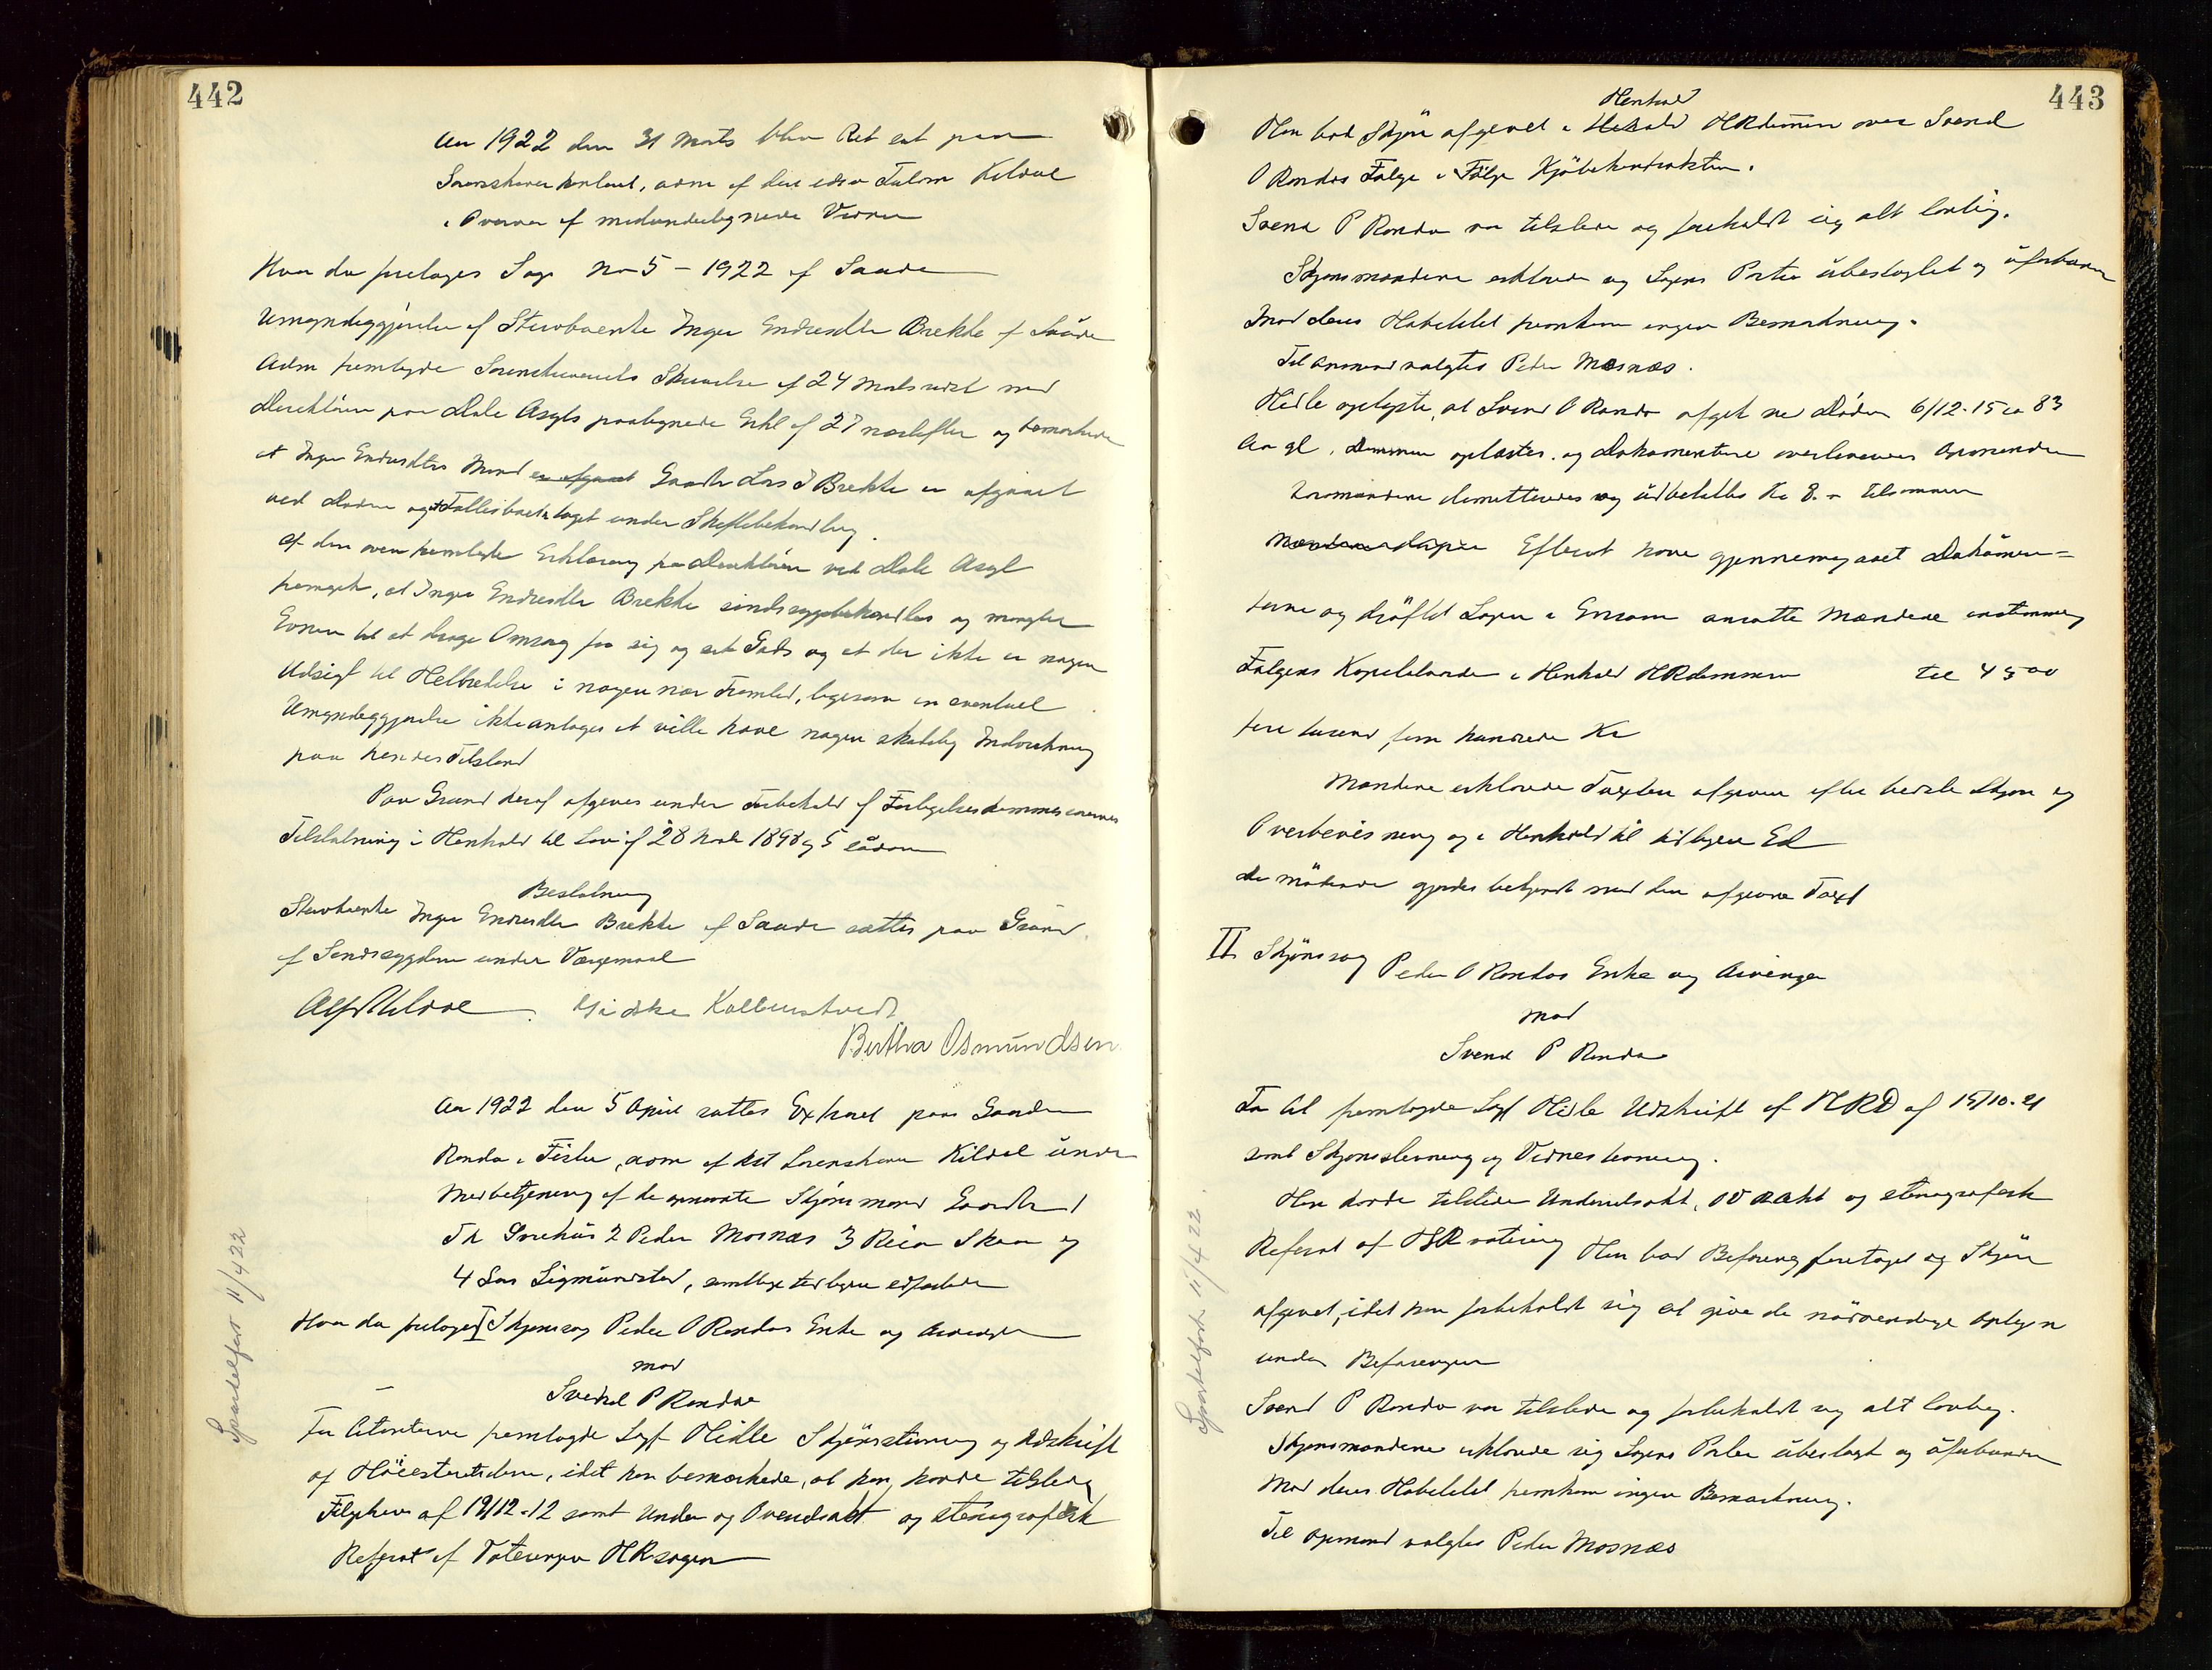 442
Aar 1922 den 31 Marts blev Ret sat paa
Sorenskriverkontoret, adm af den edsv Fuldm Kildal
i Overvær af medundertegnede Vidner
Hvor da foretoges Sag No 5 - 1922 af Saude
Umyndiggjørelse af Stervboenke Inger Endresdtr Brekke af Saude
Adm fremlagde Sorenskriverens Skrivelse af 24 Marts sidst med
Direktören paa Dale Asyls paategnede Erkl af 27 næstefter og bemærkede
at Inger Endresdtrs Mand er afgaaet Gaardbr Lars I Brekke er afgaaet
ved Døden og Fællesboet taget under Skiftebehandling.
Af den ovenfremlagte Erklæring fra Direktören ved Dale Asyl
fremgik, at Inger Endresdtr Brekke sindssygebehandles og mangler
Evnen til at drage Omsorg for sig og sit Gods og at der ikke er nogen
Udsigt til Helbredelse i nogen nær Fremtid, ligesom en eventuel
Umyndiggjørelse ikke antages at ville have nogen skadelig Indvirkning
paa hendes Tilstand
Paa Grund deraf afgives under Forbehold af Forligelseskommissionens
Tilslutning i Henhold til Lov af 28 Novb 1898 § 5 saadan
Beslutning
Stervboenke Inger Endresdtr Brekke af Saude sættes paa Grund
af Sindssygdom under Værgemaal
Alf Kildal Giske Kolbenstvedt
Bertha Osmundsen
Aar 1922 den 5 April sattes Extraret paa Gaarden
Randa i Fister, adm af kst Sorenskriver Kildal under
Medbetjening af de opnævnte Skjönsmænd Gaardbr 1
Th Grehus 2 Peder Mosnæs 3 Reier Skaar og
4 Lars Sigmundstad, samtlige tidligere edfæstede
Hvor da foretoges I Skjönssag Peder O Randas Enke og Arvinger
mod
Svend P Randa
For Citanterne fremlagde Sagf Heidle Skjönsstevning og Udskrift
af Höiesteretsdom, idet han bemærkede, at han havde tilstede
Følgebrev af 19/12-12 samt Under og Overretsakt og stenografisk
Referat af Voteringen HRsagen
Sportelført 11/4 22
443
Henhold
Han bad Skjön afgivet i Hehold HRdommen over Svend
O Randas Følge i Følge Kjöbekontrakten.
Svend P Randa var tilstede og forbeholdt sig alt lovlig.
Skjönsmændene erklærede sig Sagens Parter ubeslægtet og uforbunden
Mod deres Habilitet fremkom ingen Bemærkning.
Til Opmand valgtes Peder Mosnæs.
Heidle oplyste, at Svend O Randa afgik ved Döden 6/12-15 ca 83
Aar gl. Dommen oplæstes og Dokumenterne overleveres Opmanden
Varamændene demitteredes og udbetaltes Kr 8.- tilsammen
Efterat have gjennemgaaet Dokumen=
terne og dröftet Sagen i Enrum ansatte Mændene enstemmig
Følgens Kapitalværdi i Henhold HRdommen til 4500
fire tusend fem hundrede Kr
Mændene erklærede Taxten afgiven efter bedste Skjön og
Overbevisning og i Henhold til tidligere Ed
De mötende gjordes bekjendt med den afgivne Taxt
II Skjönssag Peder O Randas Enke og Arvinger
mod
Svend P Randa
For Cit fremlagde Sagf Heidle Udskrift af HRD af 15/10-21
samt Skjönsstevning og Vidnestevning.
Han havde tilstede Underretsakt, OR akt og stenografisk
Referat af HRvotering Han bad Befaring foretaget og Skjön
afgivet, idet han forbeholdt sig at give de nödvendige Oplysn
under Befaringen
Svend P Randa var tilstede og forbeholdt sig alt lovlig.
Skjönsmændene erklærede sig Sagens Parter ubeslægt og uforbunden
Mod deres Habilitet fremkom ingen Bemærkning.
Til Opmand valgtes Peder Mosnæs
Sportelført 11/4 22.